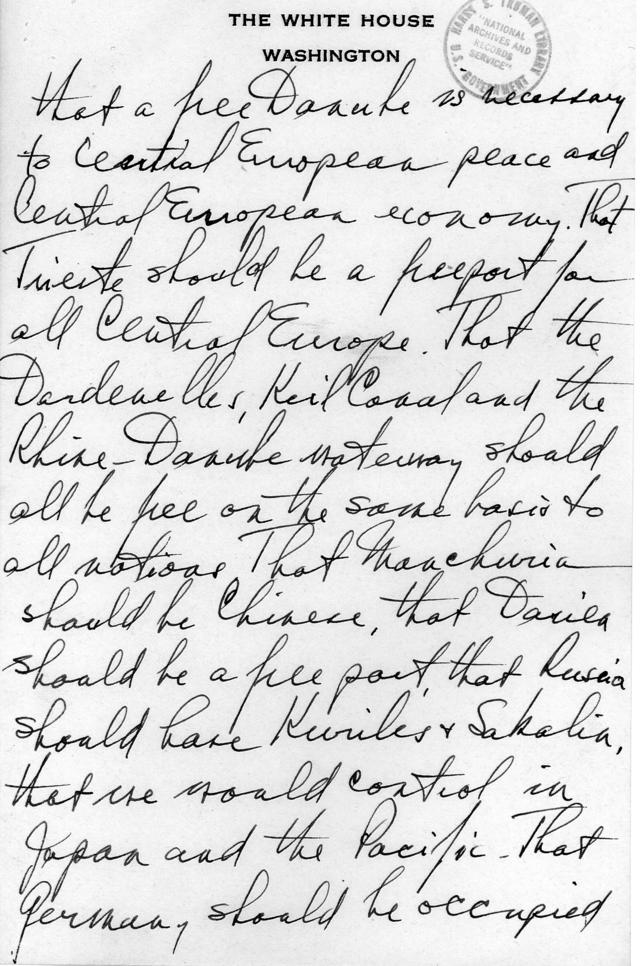 THE WHITE HOUSE
WASHINGTON
HARRY S. TRUMAN LIBRARY
"NATIONAL
ARCHIVES AND
RECORDS
SERVICE"
U.S. GOVERNMENT
that a free Danube is necessary
to Central European peace and
Central European economy. That
Trieste should be a freeport for
all Central Europe. That the
Dardenelles, Keil Canal and the
Rhine-Danube waterway should
all be free on the same basis to
all nations. That Manchuria
should be Chinese, that Darien
should be a free port, that Russia
should have Kuriles & Sakalin,
that we would control in
Japan and the Pacific. That
Germany should be occupied